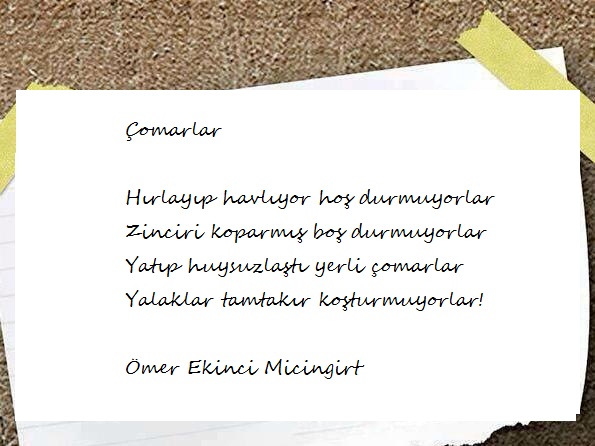 Çomarlar
Hırlayıp havlıyor hoş durmuyorlar
Zinciri koparmış boş durmuyorlar
Yatıp huysuzlaştı yerli çomarlar
Yalaklar tamtakır koşturmuyorlar!
Ömer Ekinci Micingirt